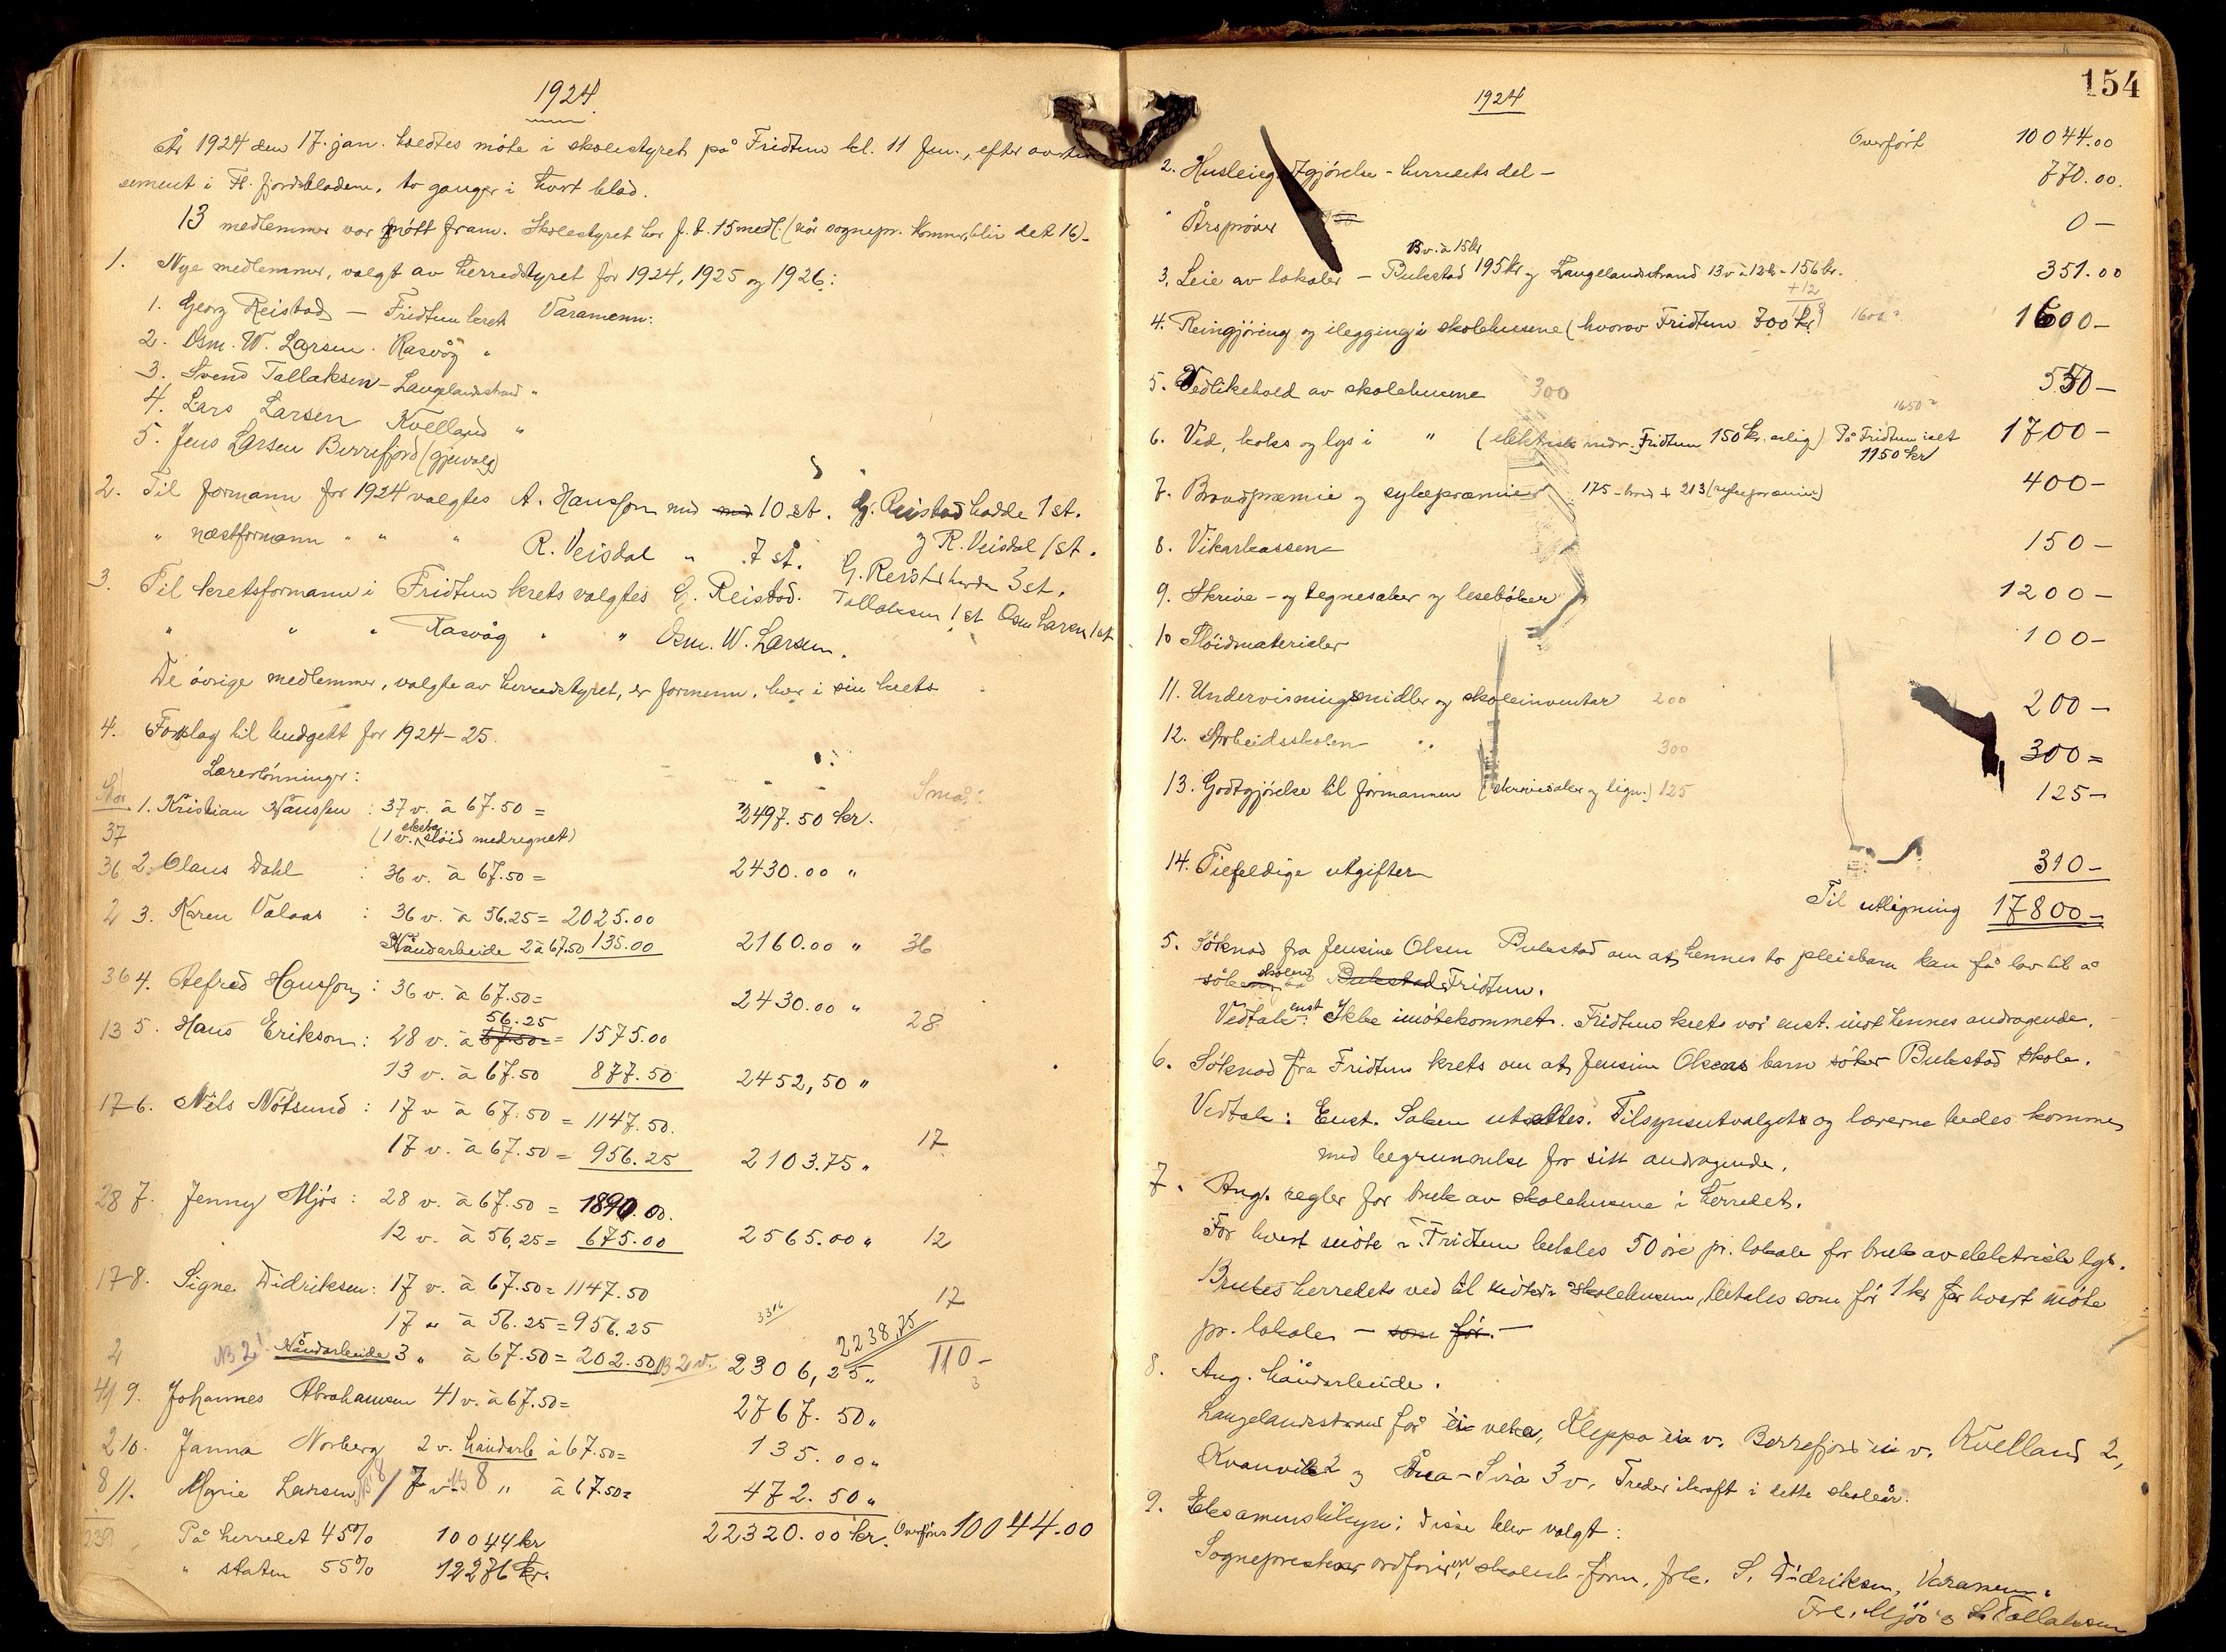 1924
År 1924 den 17. jan. holdtes møte i skolestyret på Fridtun kl. 11 fm., efter averti
sement i Fl. fjordsbladene, to ganger i hvert blad.
13 medlemmer var møtt fram. Skolestyret har f. t. 15 medl. (når sognepr. kommer, blir det 16).
1. Nye medlemmer, valgt av herredstyret for 1924, 1925 og 1926:
1. Georg Reistad — Fridtun krets Varamenn:
2. Osm. W. Larsen. Rasvåg "
3. Svend Tallaksen - Langelandsstrand "
4. Lars Larsen Kvelland "
5. Jens Larsen Berrefjord (gjenvalg)
2. Til formann for 1924 valgtes A. Hansson med med 10 st. G. Reistad hadde 1 st.
og R. Veisdal 1 st.
" næstformann " " " R. Veisdal " 7 st. G. Reistad hadde 3 st.
Tallaksen 1 st Osm Larsen 1 st
3. Til kretsformann i Fridtun krets valgtes G. Reistad.
" " " Rasvåg " " Osm. W. Larsen.
De øvrige medlemmer, valgte av herredstyret, er formenn, hver i sin krets
4. Forslag til budgett for 1924-25.
Lærerlønninger:
Stor Små:
37 1. Kristian Hanssen : 37 v. à 67.50 = 2497.50 kr.
(1 v. ekstra sløid medregnet)
36 2. Olaus Dahl : 36 v. à 67.50 = 2430.00 "
2 3. Karen Valaas : 36 v. à 56.25 = 2025.00
Håndarbeide 2 à 67.50 135.00 2160.00 " 36
36 4. Alfred Hansson : 36 v. à 67.50 = 2430.00 "
56.25
13 5. Hans Erikson : 28 v. à 67.50 = 1575.00 28
13 v. à 67.50 877.50 2452,50 "
17 6. Nils Nøtsund : 17 v à 67.50 = 1147.50.
17 v. à 67.50 = 956.25 2103.75 " 17
28 7. Jenny Mjøs : 28 v. à 67.50 = 1890.00.
12 v. à 56,25 = 675.00 2565.00 " 12
17 8. Signe Didriksen : 17 v. à 67.50 = 1147.50
17 " à 56.25 = 956.25 17
2238,75
2 NB 2! Håndarbeide 3 " à 67.50 = 202.50 NB 2 v. 2306,25 " 110 -
3
41 9. Johannes Abrahamsen 41 v. à 67.50 = 2767.50 "
2 10. Janna Norberg 2 v. håndarb à 67.50 = 135.00 "
8 11. Marie Larsen 7 v. NB 8 " à 67.50 = 472.50 "
239 22320.00 kr. Overføres 10044.00
På herredet 45% 10044 kr
" staten 55% 12276 kr.
154
1924
Overført 10044.00
2. Husleiegodtgjørelse - herredets del - 770.00.
" Årsprøver 0 -
13 v. à 15 kr
3. Leie av lokaler — Bukstad 195 kr og Langelandsstrand 13 v à 12 kr = 156 kr. 351.00
+12
4. Reingjøring og ilegging i skolehusene (hvorav Fridtun 700 kr) 1600 -
5. Vedlikehold av skolehusene 300 550 -
1650
6. Ved, koks og lys i " (elektrisk vedr. Fridtun 150 kr. årlig) På Fridtun ialt 1700 -
1150 kr
7. Brandpræmie og sykepræmie 175 - brand + 213 (sykepræmie) 400 -
8. Vikarkassen 150 -
9. Skrive - og tegnesaker og lesebøker 1200 -
10 Sløidmaterialer 100 -
11. Undervisningsmidler og skoleinventar 200 200 -
12. Arbeidsskolen 300 300 =
13. Godtgjørelse til formannen (skrivesaker og lign.) 125 125 -
14. Tilfeldige utgifter 310 -
Til utligning 17800 -
5. Søknad fra Jensine Olsen Bukstad om at hennes to pleiebarn kan få lov til å
søke skolen på Bukstad Fridtun.
Vedtak enst: Ikke imøtekommet. Fridtun krets var enst. imot hennes andragende.
6. Søknad fra Fridtun krets om at Jensine Olsens barn søker Bukstad skole.
Vedtak: Enst. Saken utsettes. Tilsynsutvalget og lærerne bedes komme
med begrunnelse for sitt andragende.
7. Ang. regler for bruk av skolehusene i herredet.
For hvert møte i Fridtun betales 50 øre pr. lokale for bruk av elektrisk lys.
Brukes herredets ved til møter i skolehusene, betales som før 1 kr for hvert møte
pr. lokale — som før. —
8. Ang. håndarbeide.
Langelandsstrand får ei veke, Kleppe ei v. Berrefjord ei v. Kvelland 2,
Kvanvik 2 og Åna-Sira 3 v. Treder ikraft i dette skoleår.
9. Eksamenstilsyn: Disse blev valgt:
Sognepresten, ordføreren, skolest. form, frk. S. Didriksen, Varamenn:
Frk. Mjøs og S. Tallaksen